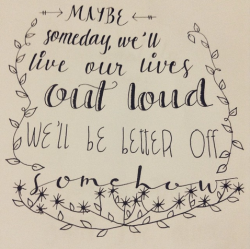 MAYBE
someday, we'll
live our lives
out loud
WE'll bE bEttER Off
somehow